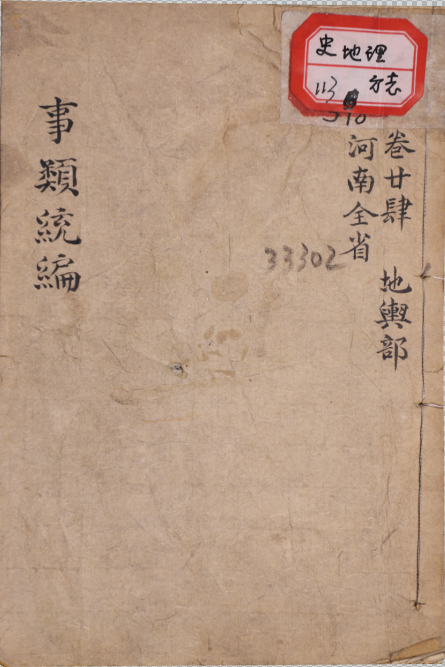 史地理
113 方志
510
卷廿肆 地輿部
河南全省
33302
事類統編